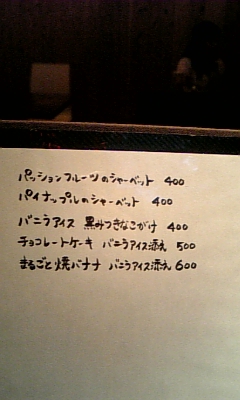 パッションフルーツのシャーベット 400
パイナップルのシャーベット 400
バニラアイス 黒みつきなこがけ 400
チョコレートケーキ バニラアイス添え 500
まるごと焼バナナ バニラアイス添え 600